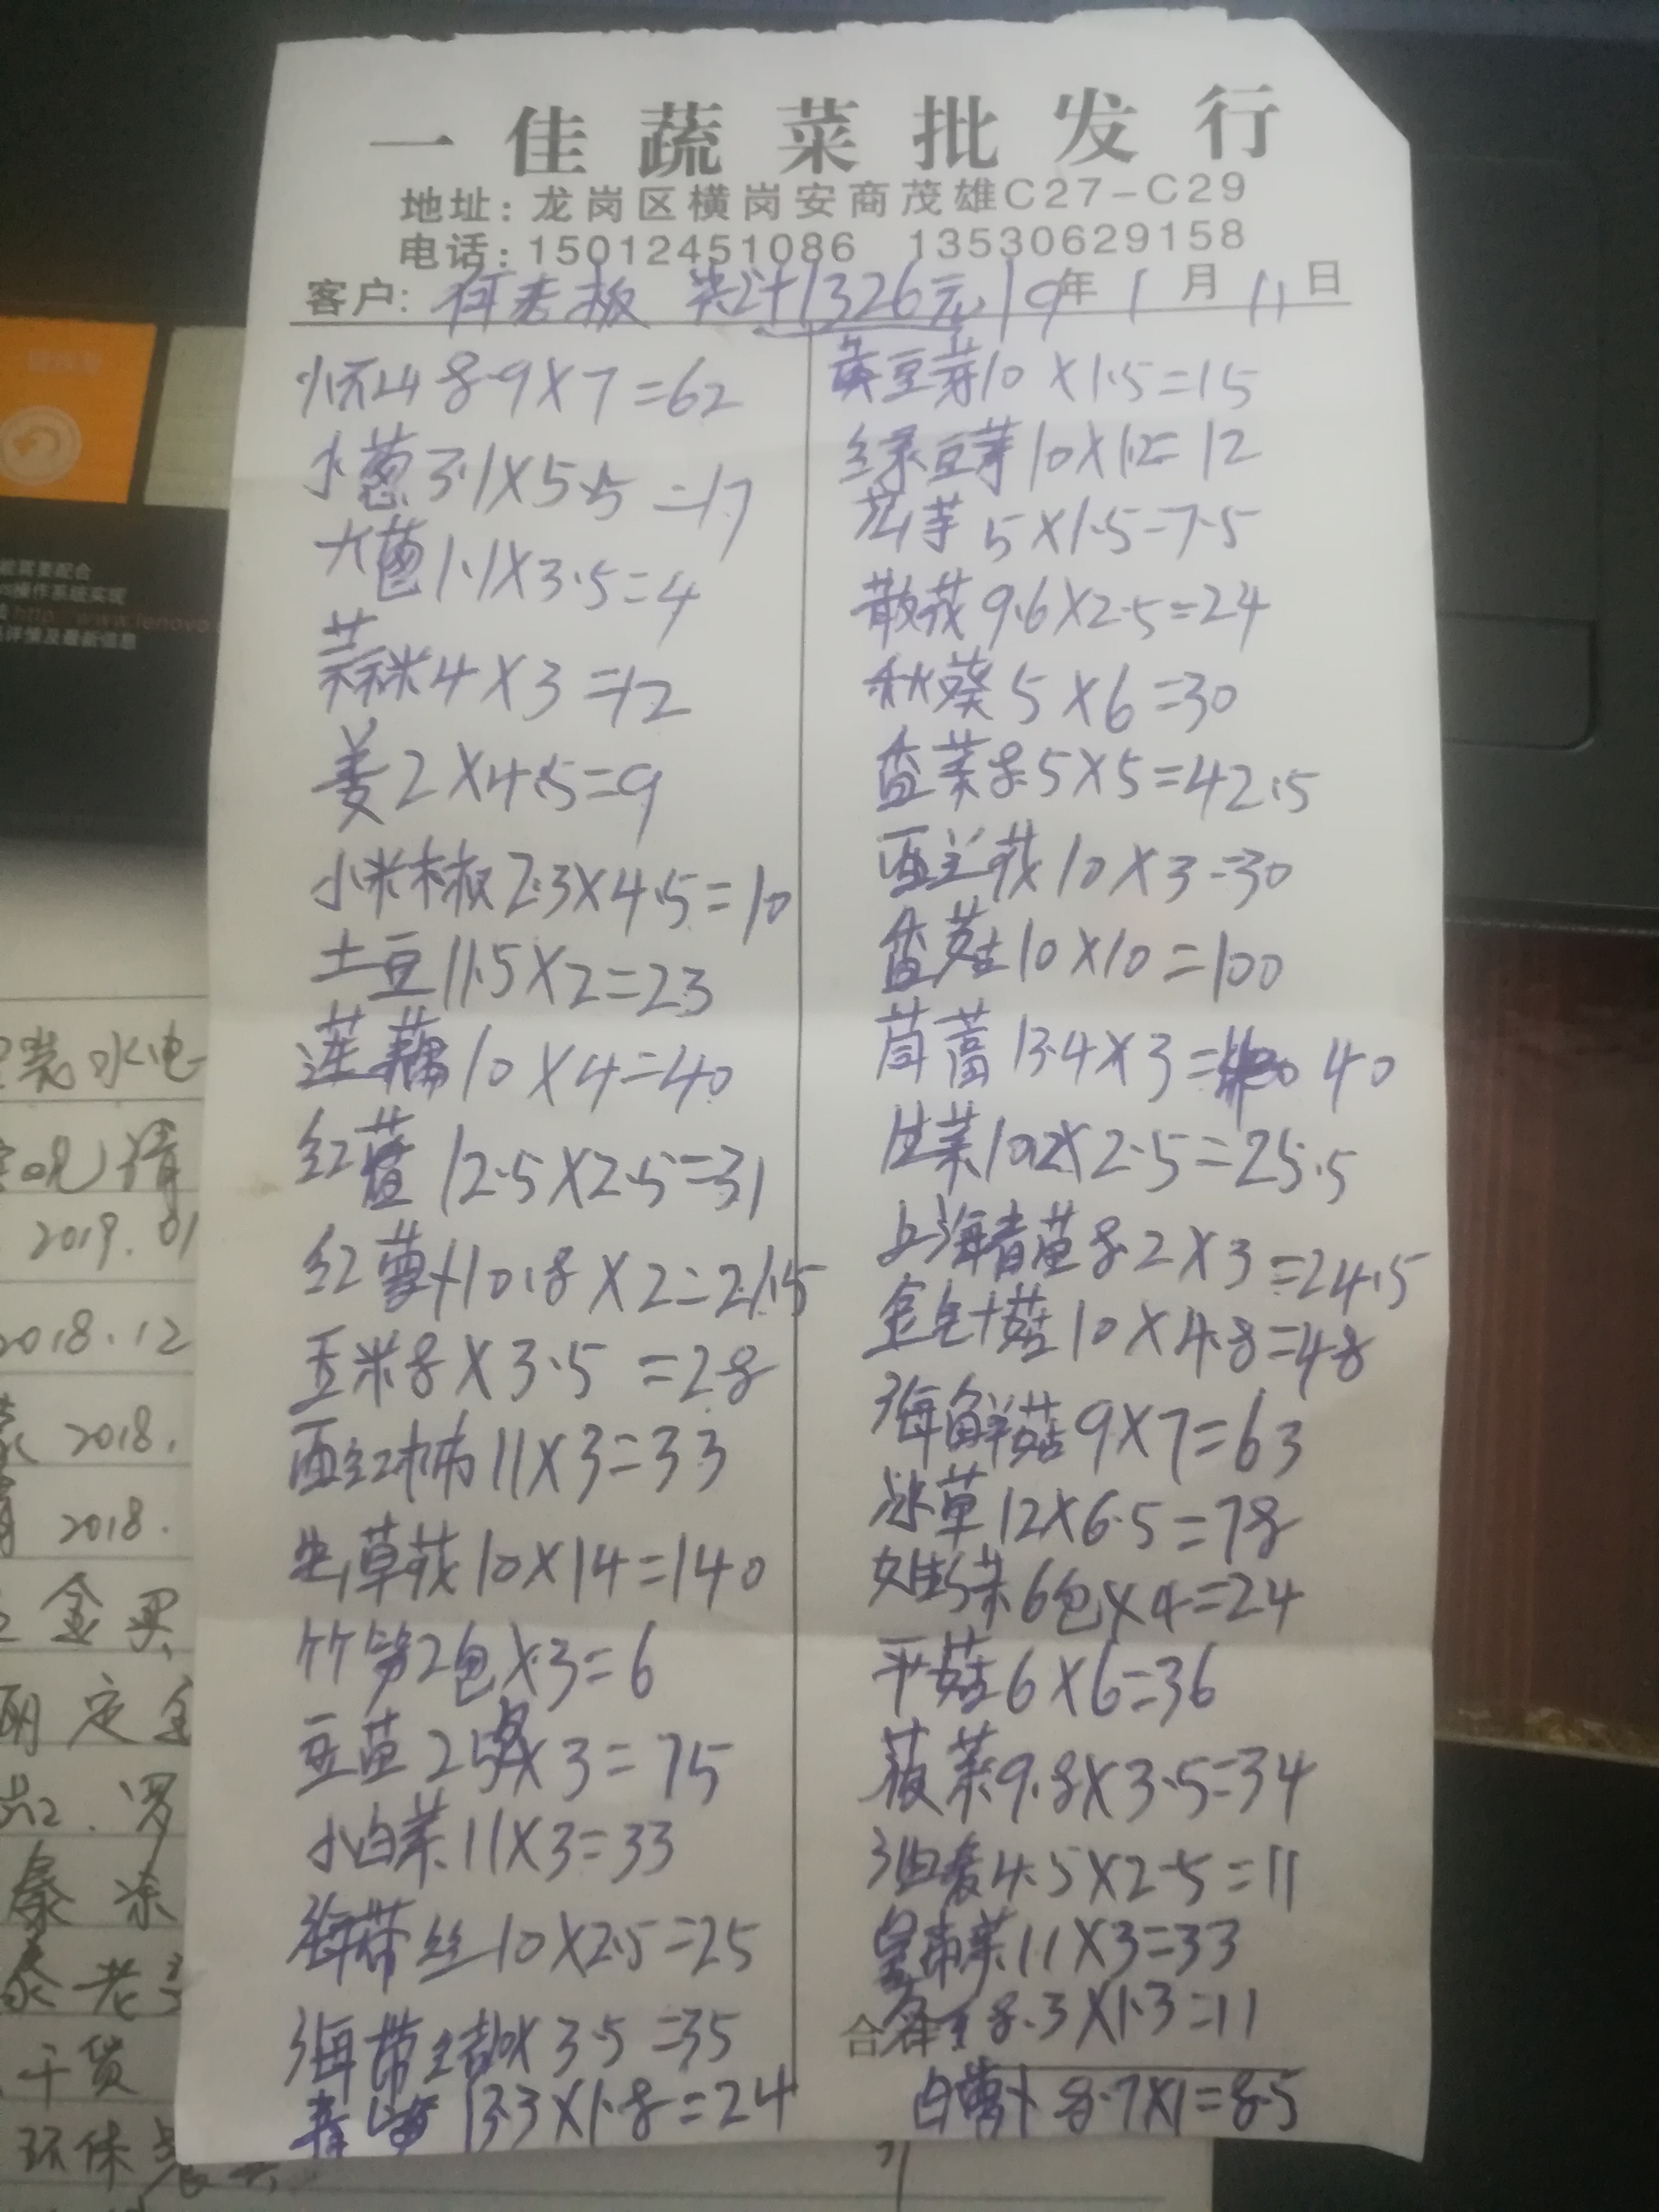 一佳蔬菜批发行
地址：龙岗区横岗安商茂雄C27-C29
电话：15012451086 13530629158
客户：何老板 共计1326元 19年1月11日
怀山8.9X7=62
水葱3.1X5.5=17
大葱1.1X3.5=4
蒜米4X3=12
姜2X4.5=9
小米椒2.3X4.5=10
土豆11.5X2=23
莲藕10X4=40
红薯12.5X2.5=31
红萝卜10.8X2=21.5
玉米8X3.5=28
西红柿11X3=33
虫草花10X14=140
竹笋2包X3=6
豆苗25X3=75
小白菜11X3=33
海带丝10X2.5=25
海带结10X3.5=35
13.3X1.8=24
黄豆芽10X1.5=15
绿豆芽10X1.2=12
5X1.5=7.5
散花9.6X2.5=24
秋葵5X6=30
香菜8.5X5=42.5
西兰花10X3=30
香菇10X10=100
茼蒿13.4X3=40
生菜10.2X2.5=25.5
上海青苗8.2X3=24.5
金针菇10X4.8=48
海鲜菇9X7=63
冰草12X6.5=78
娃娃菜6包X4=24
平菇6X6=36
菠菜9.8X3.5=34
油麦4.5X2.5=11
皇帝菜11X3=33
合 8.3X1.3=11
白萝卜8.7X1=8.5
装水电
清
2019.01
2018.12
2018.
2018.
金
定金
罗
泰
泰老
干货
环保
能需要配合
操作系统实现
http://www.lenovo
详情及最新信息